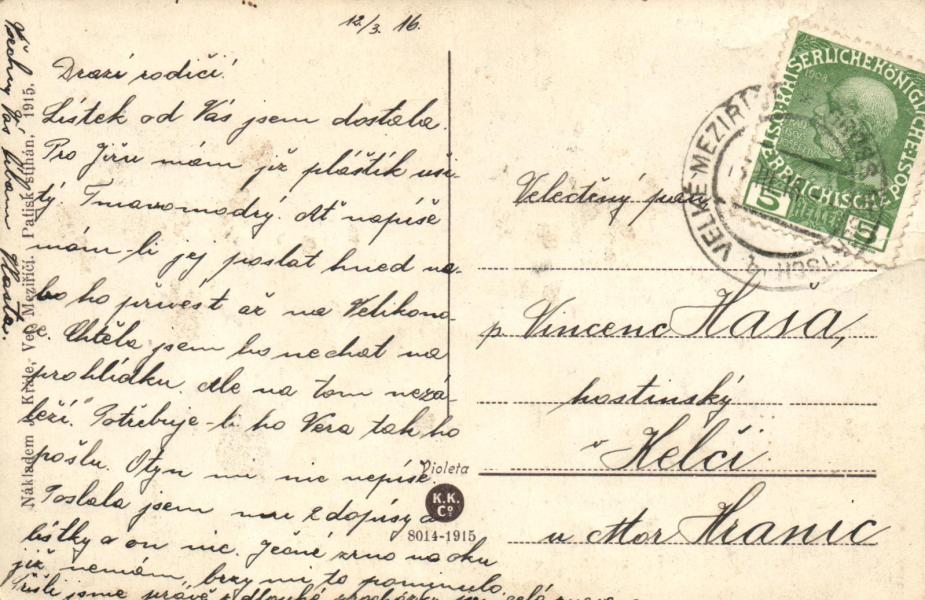 12/3. 16.
Drazí rodičí!
Lístek od Vás jsem dostala.
Pro Jiřu mám již pláštík uši-
tý. Tmavomodrý. Ať napíše
mám-li jej poslat hned ne-
bo ho přivést až na Velikono-
ce. Chtěla jsem ho nechat na
prohlídku. Ale na tom nezá-
leží. Potřebuje-li ho Věra tak ho
pošlu. Otyn mi nic nepíše.
Poslala jsem mu 2 dopisy a
lístky a on nic. Ječné zrno na oku
již nemám, brzy mi to pominulo.
Přišli jsme právě z dlouhé procházky
Všechny Vás líbám Vlasta.
Nákladem J. Krále, Velk. Meziříčí. Patisk stíhán, 1915.
Violeta
K.K.
Co.
8014-1915
KAISERLICHE KÖNIGLICHE
ÖSTERREICHISCHE POST
1908
5 5
VELKÉ MEZIŘÍČÍ
Velectěný pan
p. Vincenc Haša,
hostinský
v Kelči
u Mor Hranic